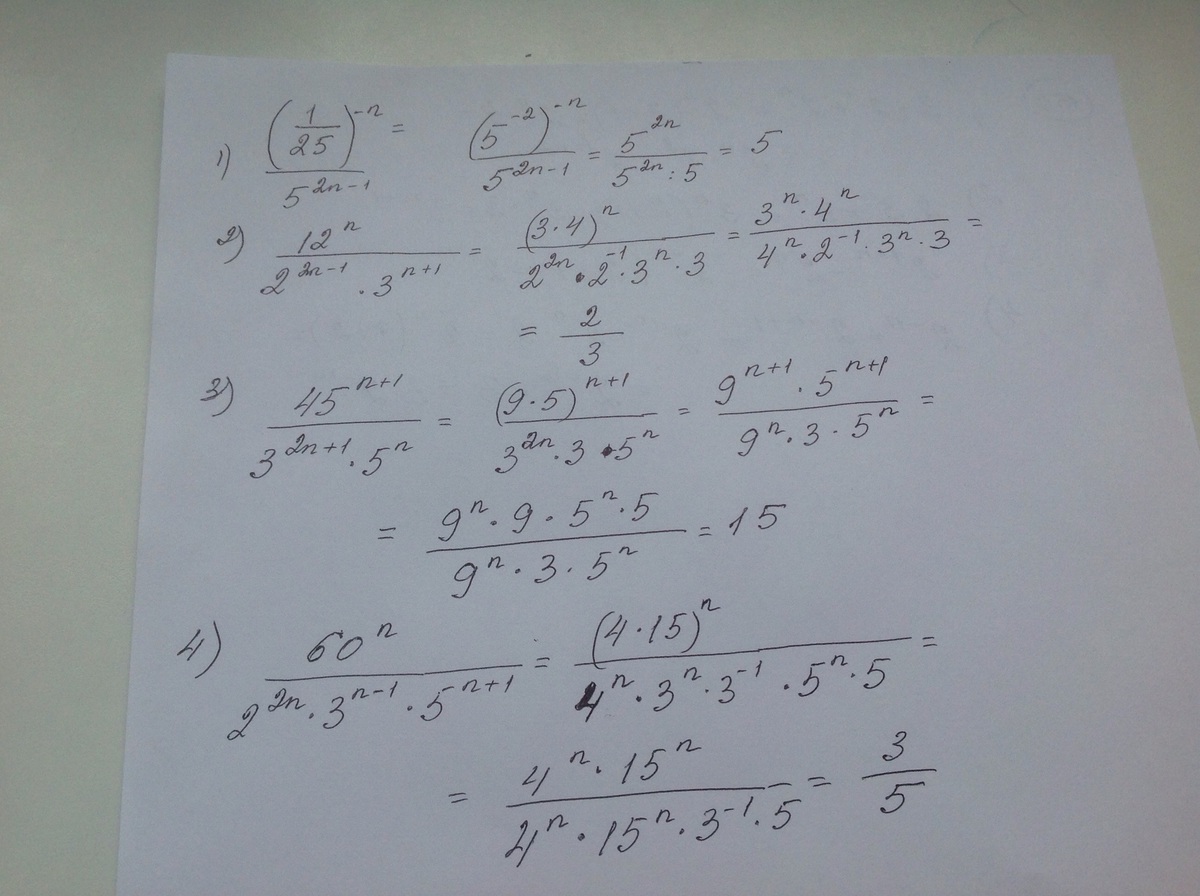 1) (1/25)^{-n} / 5^{2n-1} = (5^{-2})^{-n} / 5^{2n-1} = 5^{2n} / 5^{2n} : 5 = 5
2) 12^n / 2^{2n-1} · 3^{n+1} = (3·4)^n / 2^{2n} · 2^{-1} · 3^n · 3 = 3^n · 4^n / 4^n · 2^{-1} · 3^n · 3 =
= 2/3
3) 45^{n+1} / 3^{2n+1} · 5^n = (9·5)^{n+1} / 3^{2n} · 3 · 5^n = 9^{n+1} · 5^{n+1} / 9^n · 3 · 5^n =
= 9^n · 9 · 5^n · 5 / 9^n · 3 · 5^n = 15
4) 60^n / 2^{2n} · 3^{n-1} · 5^{n+1} = (4·15)^n / 4^n · 3^n · 3^{-1} · 5^n · 5 =
= 4^n · 15^n / 4^n · 15^n · 3^{-1} · 5 = 3/5